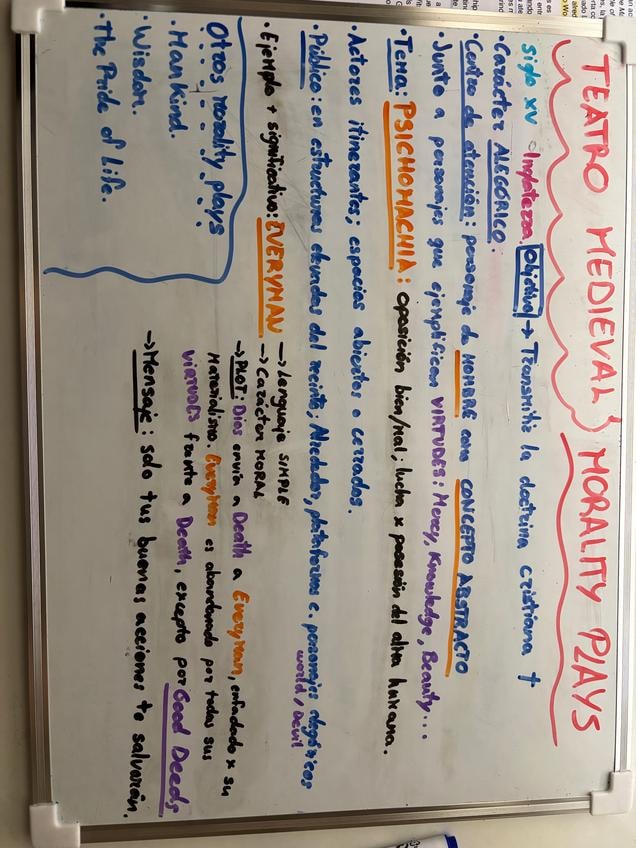 TEATRO MEDIEVAL } MORALITY PLAYS
Siglo XV ○ Inglaterra. Objetivo → Transmitir la doctrina cristiana †
· Carácter ALEGÓRICO:
· Centro de atención: personaje de HOMBRE como CONCEPTO ABSTRACTO
· Junto a personajes que ejemplifican VIRTUDES: Mercy, Knowledge, Beauty...
· Tema: PSICHOMACHIA: oposición bien/mal; lucha x posesión del alma humana.
· Actores itinerantes; espacios abiertos o cerrados.
· Público: en estructuras elevadas del recinto; Alrededor, plataformas c. personajes alegóricos
world, Devil
· Ejemplo + significativo: EVERYMAN → Lenguaje SIMPLE
→ Carácter MORAL
→ PLOT: Dios envía a Death a Everyman, enfadado x su
Materialismo. Everyman es abandonado por todas sus
VIRTUDES frente a Death, excepto por Good Deeds
→ Mensaje: solo tus buenas acciones te salvarán.
Otros morality plays
· Mankind.
· Wisdom.
· The Pride of Life.